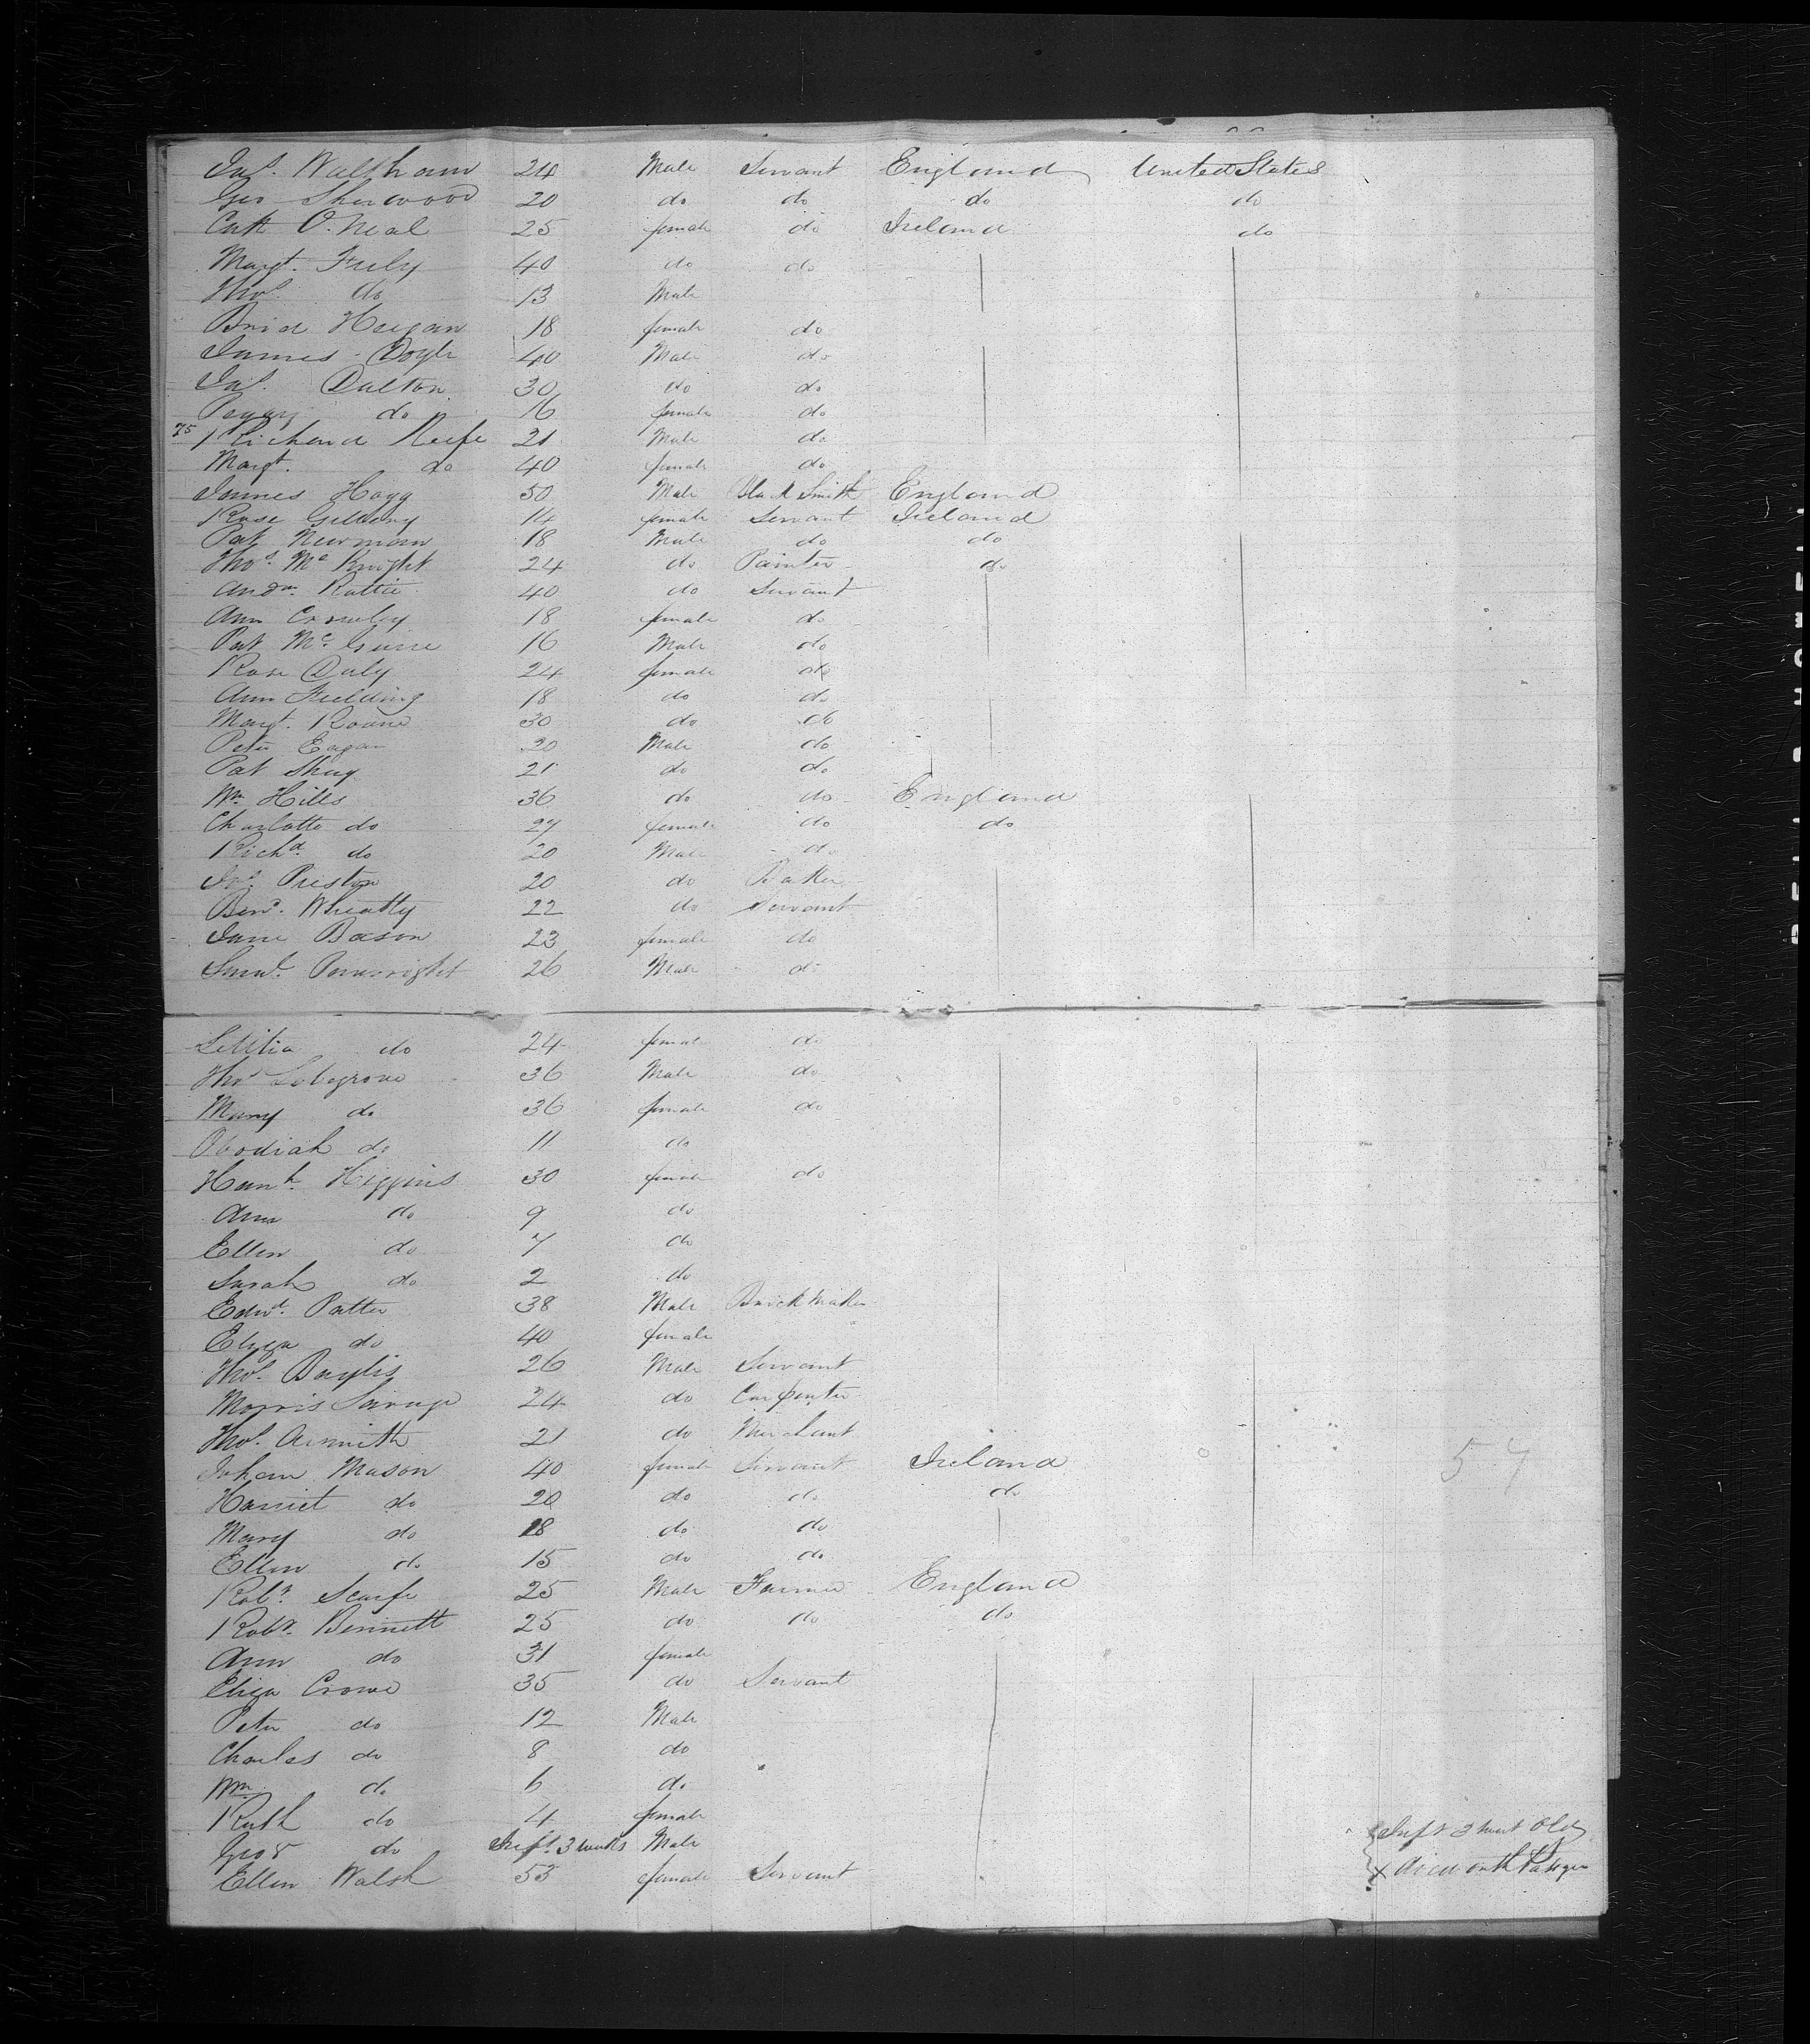 Jas. Waltham 24 Male Servant England United States
Geo Sherwood 20 do do do do
Cath O. Neal 25 female do Ireland do
Margt. Feely 40 do do
Thos. do 13 Male
Brid Heegan 18 female do
James Doyle 40 Male do
Jas. Dalton 30 do do
Peggy do 16 female do
75 Richard Keefe 21 Male do
Margt. do 40 female do
James Hogg 50 Male Black Smith England
Rose 14 female Servant Ireland
Pat Newman 18 Male do do
Thos. Mc Knight 24 do Painter do
Andw. 40 do Servant
Ann 18 female do
Pat Mc Guire 16 Male do
Rose Daly 24 female do
Ann Fielding 18 do do
Margt. Roane 30 do do
Peter Eagan 20 Male do
Pat Shay 21 do do
Wm Hills 36 do do England
Charlotte do 27 female do do
Richd do 20 Male do
Jos. Preston 20 do Baker
Benj. Wheatly 22 do Servant
Jane Bason 23 female do
Saml. 26 Male do
Letitia do 24 female do
Thos 36 Male do
Mary do 36 female do
Obodiah do 11 do
Hanh. Higgins 30 female do
Ann do 9 do
Ellen do 7 do
Sarah do 2 do
Edwd. Patter 38 Male Brick Maker
Eliza do 40 female
Thos. Baylis 26 Male Servant
Morris Savage 24 do Carpenter
Thos. 21 do Merchant
Mason 40 female Servant Ireland
57
Harriet do 20 do do do
Mary do 18 do do
Ellen do 15 do do
Robt. Scarfe 25 Male Farmer England
Robt. Bennett 25 do do do
Ann do 31 female
Eliza Crowe 35 do Servant
Peter do 12 Male
Charles do 8 do
Wm do 6 do
Ruth do 4 female
Geo do Inft. 3 weeks Male Inft 3 week Old
Ellen Walsh 53 female Servant x died on the Passage